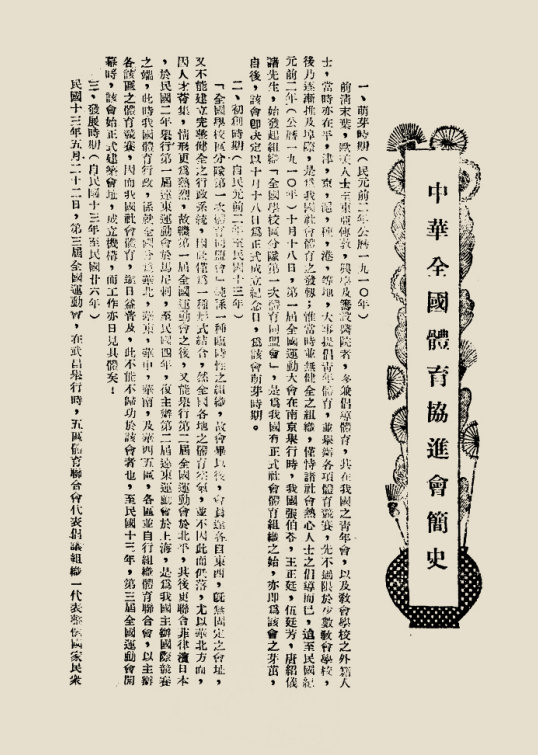 中華全國體育協進會簡史
一、萌芽時期(民元前二年公曆一九一〇年)
前淸末葉,歐美人士至東亞傳敎,興學及籌設醫院者,多兼倡導體育,其在我國之靑年會,以及敎會學校之外籍人
士,當時亦在平,津,京,滬,港,等地,大事提倡靑年體育,並舉辦各項體育競賽,先不過限於少數敎會學校,
後乃逐漸推及埠際,是爲我國社會體育之發軔,惟當時並無健全之組織,僅恃諸社會熱心人士之倡導而已,迨至民國紀
元前二年(公曆一九一〇年)十月十八日,第一屆全國運動大會在南京舉行時,我國張伯苓,王正廷,伍廷芳,唐紹儀
諸先生,始發起組織「全國學校區分隊第一次體育同盟會」,是爲我國有正式社會體育組織之始,亦卽爲該會之芽茁,
自後,該會卽決定以十月十八日爲正式成立紀念日,爲該會萌芽時期。
二、初創時期(自民元前二年至民國十三年)
「全國學校區分隊第一次體育同盟會」旣係一種臨時性之組織,故會畢以後,會員遂各自東西,旣無固定之會址,
又不能建立完整健全之行政系統,因此僅爲一種形式結合,然全國各地之體育空氣,並不因此而低落,尤以華北方面,
因人才薈集,情形更爲熱烈,故繼第一屆全國運動會之後,又能舉行第二屆全國運動會於北平,其後更聯合菲律濱日本
,於民國二年舉行第一屆遠東運動會於馬尼剌,至民國四年,復主辦第二屆遠東運動會於上海,是爲我國主辦國際競賽
之端,此時我國體育行政,係就全國分爲華北,華東,華中,華南,及華西五區,各區並自行組織體育聯合會,以主辦
各該區之體育競賽,因而我國社會體育,遂日益普及,此不能不歸功於該會者也,至民國十三年,第三屆全國運動會開
幕時,該會始正式建築會址,成立機構,而工作亦日見其體矣!
三、發展時期(自民國十三年至民國廿六年)
民國十三年五月二十二日,第三屆全國運動會,在武昌舉行時,五區體育聯合會代表倡議組織一代表整個國家民衆